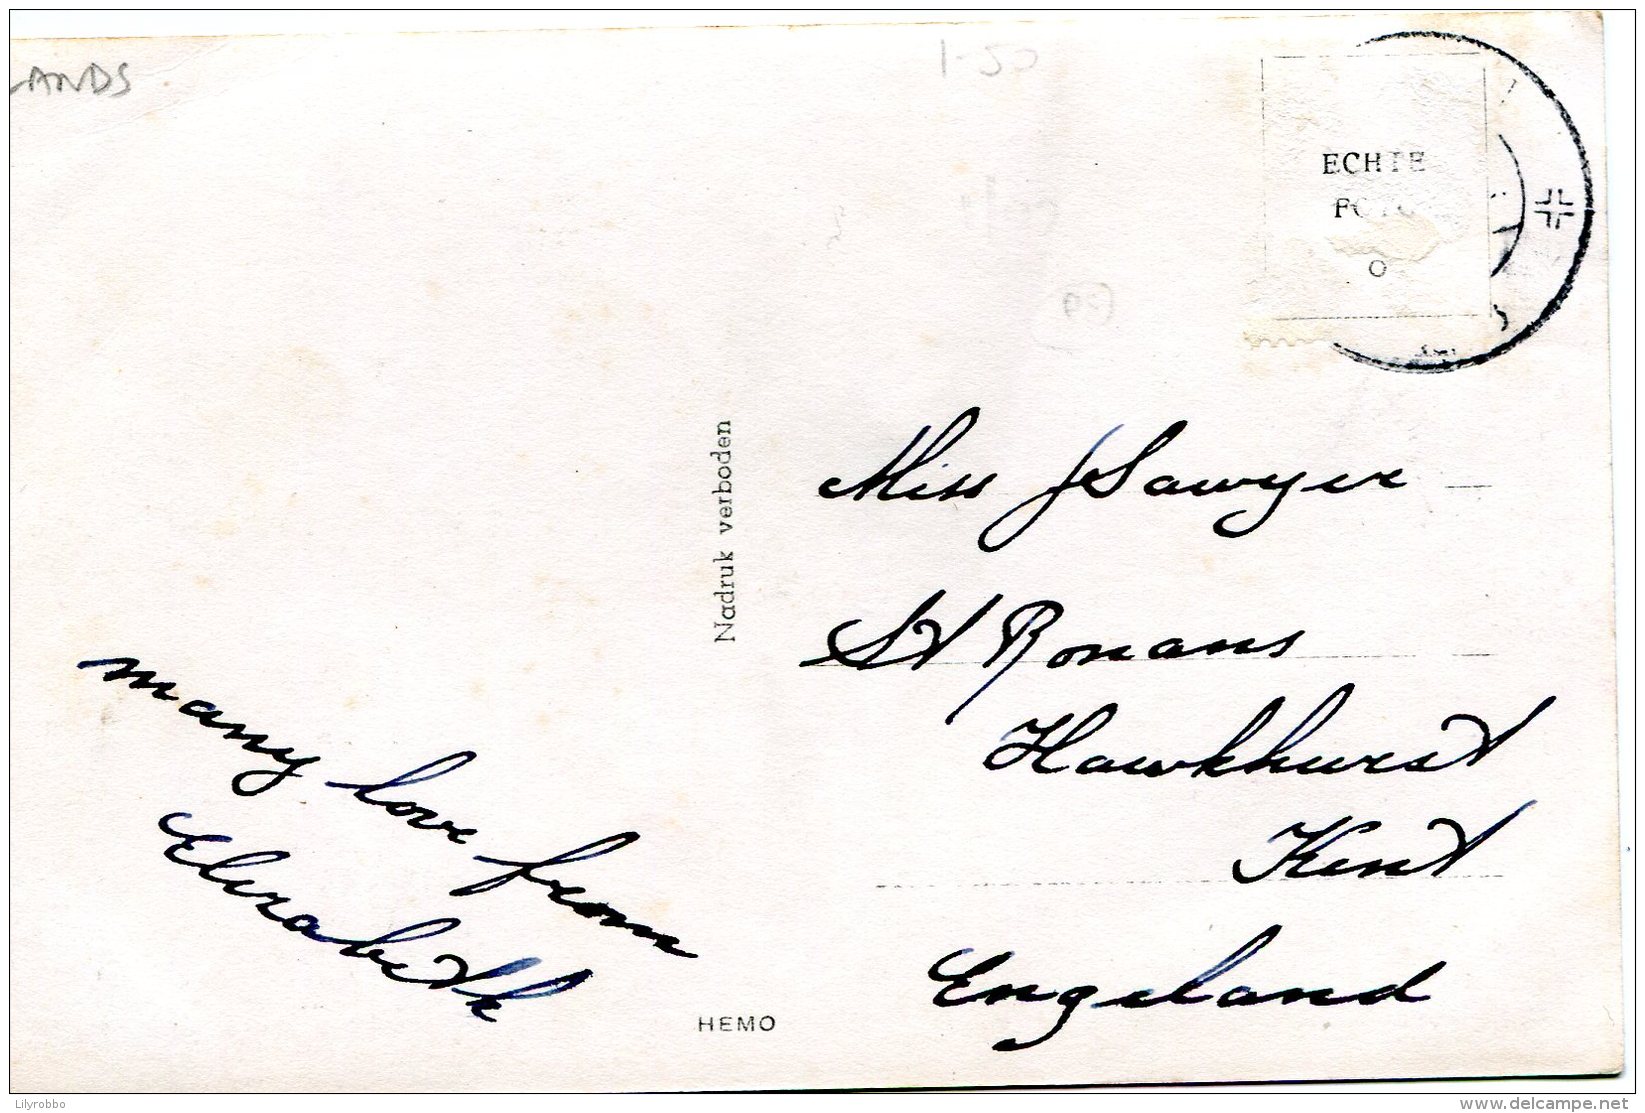 LANDS
1-50
ECHTE
FOTO
Nadruk verboden
Miss J Sawyer
St Ronans
Hawkhurst
Kent
Engeland
many love from
Elizabeth
HEMO
Lilyrobbo
www.delcampe.net